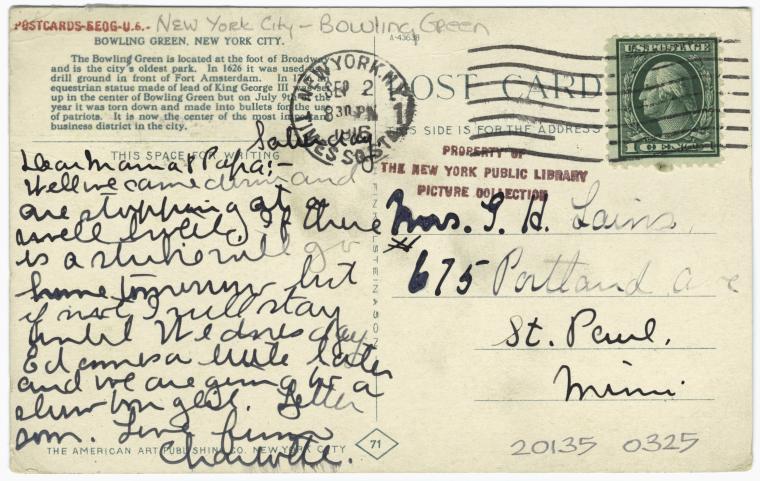 POSTCARDS-GEOG-U.S.- New York City - Bowling Green
BOWLING GREEN, NEW YORK CITY.
The Bowling Green is located at the foot of Broadway
and is the city's oldest park. In 1626 it was used as
drill ground in front of Fort Amsterdam. In
equestrian statue made of lead of King George III was set
up in the center of Bowling Green but on July 9th of the
year it was torn down and made into bullets for the use
of patriots. It is now the center of the most important
business district in the city.
THIS SPACE FOR WRITING
Saturday
Dear Mama & Papa:-
Well we came down and
are stopping at a
swell hotel. If there
is a strike will go
home tomorrow but
if not I will stay
until Wednesday
Ed comes a little later
and we are going to a
show tonight. Letter
soon. Love from
Charlotte.
THE AMERICAN ART PUBLISHING CO. NEW YORK CITY
71
A-43638
POST CARD
THIS SIDE IS FOR THE ADDRESS
NEW YORK, N.Y.
SEP 2
830 PM
1916
1
U.S. POSTAGE
1 CENT 1
PROPERTY OF
THE NEW YORK PUBLIC LIBRARY
PICTURE COLLECTION
Mrs. G. H. Lains,
675 Portland ave
St. Paul,
Minn.
20135 0325